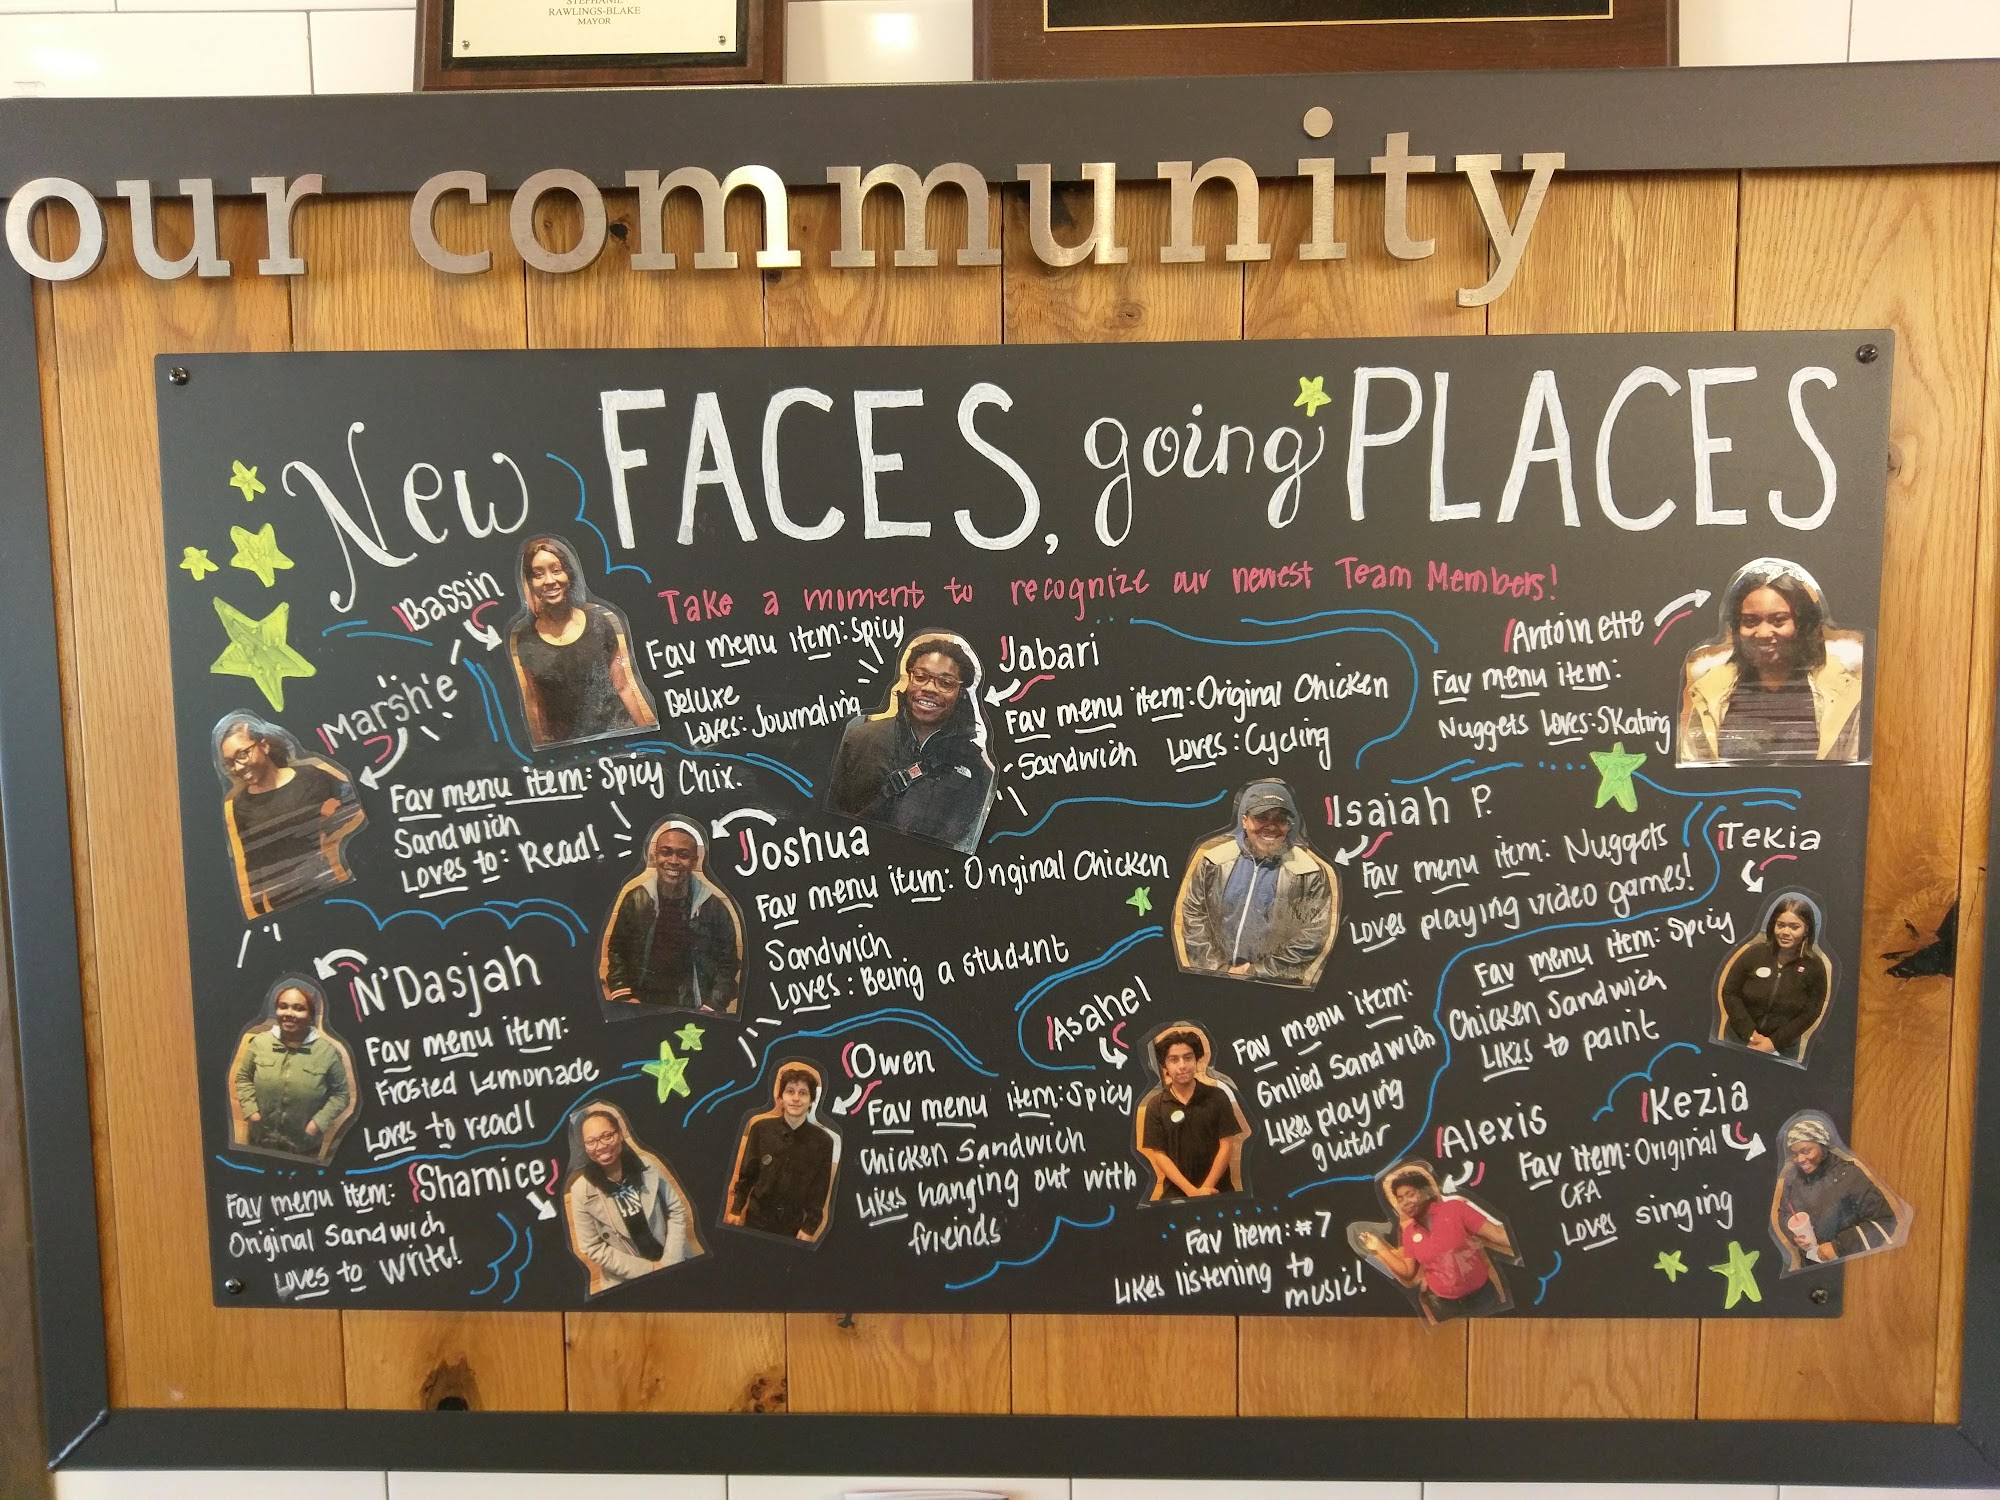 STEPHANIE
RAWLINGS-BLAKE
MAYOR
our community
New FACES, going PLACES
Take a moment to recognize our newest Team Members!
Bassin
Fav menu item: Spicy
Deluxe
Loves: Journaling
Jabari
Fav menu item: Original Chicken
Sandwich Loves: Cycling
Antoinette
Fav menu item:
Nuggets Loves: Skating
Marsh'e
Fav menu item: Spicy Chix.
Sandwich
Loves to: Read!
Joshua
Fav menu item: Original Chicken
Sandwich
Loves: Being a student
Isaiah P.
Fav menu item: Nuggets
Loves playing video games!
Tekia
Fav menu item: Spicy
Chicken Sandwich
Likes to paint
N'Dasjah
Fav menu item:
Frosted Lemonade
Loves to read!
Owen
Fav menu item: Spicy
Chicken Sandwich
Likes hanging out with
friends
Asahel
Fav menu item:
Grilled Sandwich
Likes playing
guitar
Shamice
Fav menu item:
Original Sandwich
Loves to write!
Alexis
Fav item: #7
Likes listening to
music!
Kezia
Fav item: Original
CFA
Loves singing